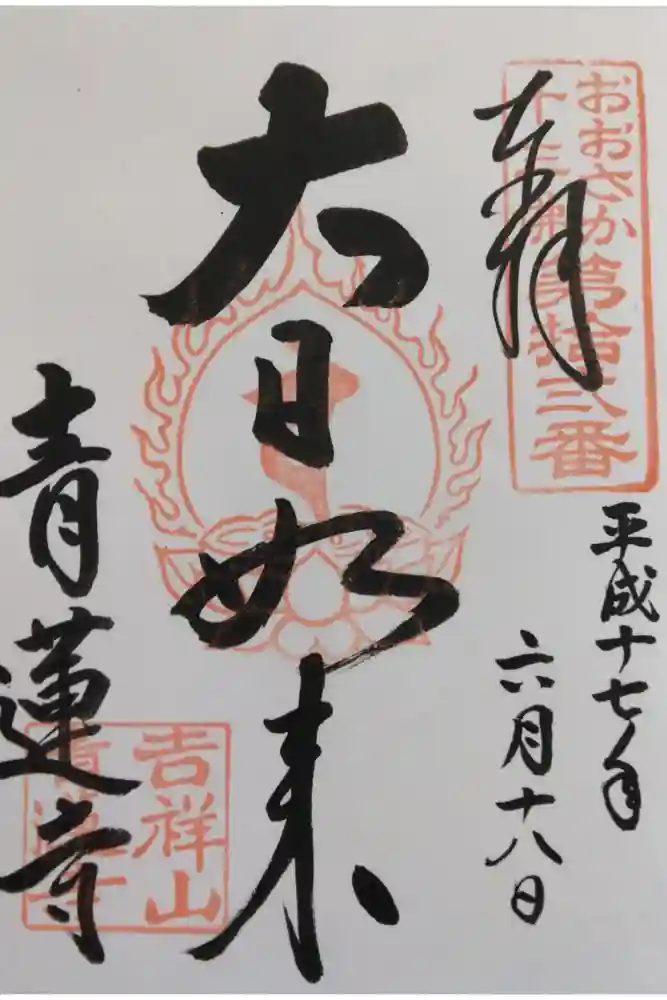 奉拝
おおさか
十三佛
第拾三番
平成十七年
六月十八日
大日如来
青蓮寺
吉祥山
青蓮寺